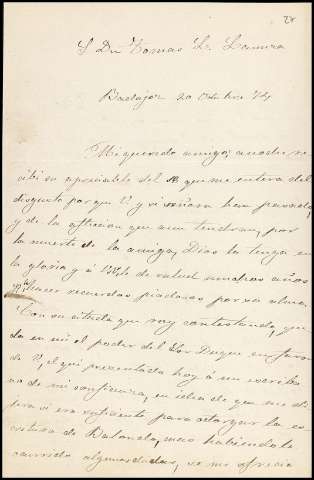 S Dn Tomas L.
Badajoz 20 Octubre 74
Mi querido amigo; anoche re
cibí su apreciable del 18 que me entera del
disgusto porque V. y su señora han pasado,
y de la afliccion que aun tendran, por
la muerte de la amiga, Dios la tenga en
la gloria y á de salud muchos años
para hacer recuerdos piadosos por su alma.
Con su citada que voy contestando, que
da en mi el poder del Sor Duque en favor
de V, el que presentado hoy á un escriba
no de mi confianza, en idea de que me di
jera si era suficiente para otorgar la es
critura de mas habiendole
ocurrido algunas dudas, se me ofrecia